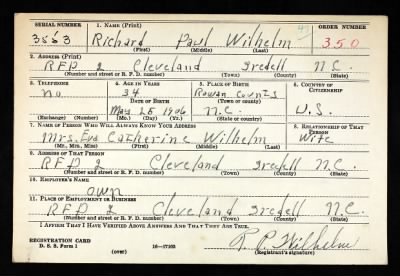 SERIAL NUMBER 1. NAME (Print) ORDER NUMBER
3563 Richard Paul Wilhelm 350
(First) (Middle) (Last)
2. ADDRESS (Print)
RFD 2 Cleveland Iredell N.C.
(Number and street or R. F. D. number) (Town) (County) (State)
3. TELEPHONE 4. AGE IN YEARS 5. PLACE OF BIRTH 6. COUNTRY OF CITIZENSHIP
no 34 Rowan County
DATE OF BIRTH (Town or county)
May 18 1906 N.C. U.S.
(Exchange) (Number) (Mo.) (Day) (Yr.) (State or country)
7. NAME OF PERSON WHO WILL ALWAYS KNOW YOUR ADDRESS 8. RELATIONSHIP OF THAT PERSON
Mrs. Eva Catherine Wilhelm Wife
(Mr., Mrs., Miss) (First) (Middle) (Last)
9. ADDRESS OF THAT PERSON
RFD 2 Cleveland Iredell N.C.
(Number and street or R. F. D. number) (Town) (County) (State)
10. EMPLOYER'S NAME
own
11. PLACE OF EMPLOYMENT OR BUSINESS
RFD 2 Cleveland Iredell N.C.
(Number and street or R. F. D. number) (Town) (County) (State)
I AFFIRM THAT I HAVE VERIFIED ABOVE ANSWERS AND THAT THEY ARE TRUE.
REGISTRATION CARD R. P. Wilhelm
D. S. S. Form 1 (over) 16-17105 (Registrant's signature)